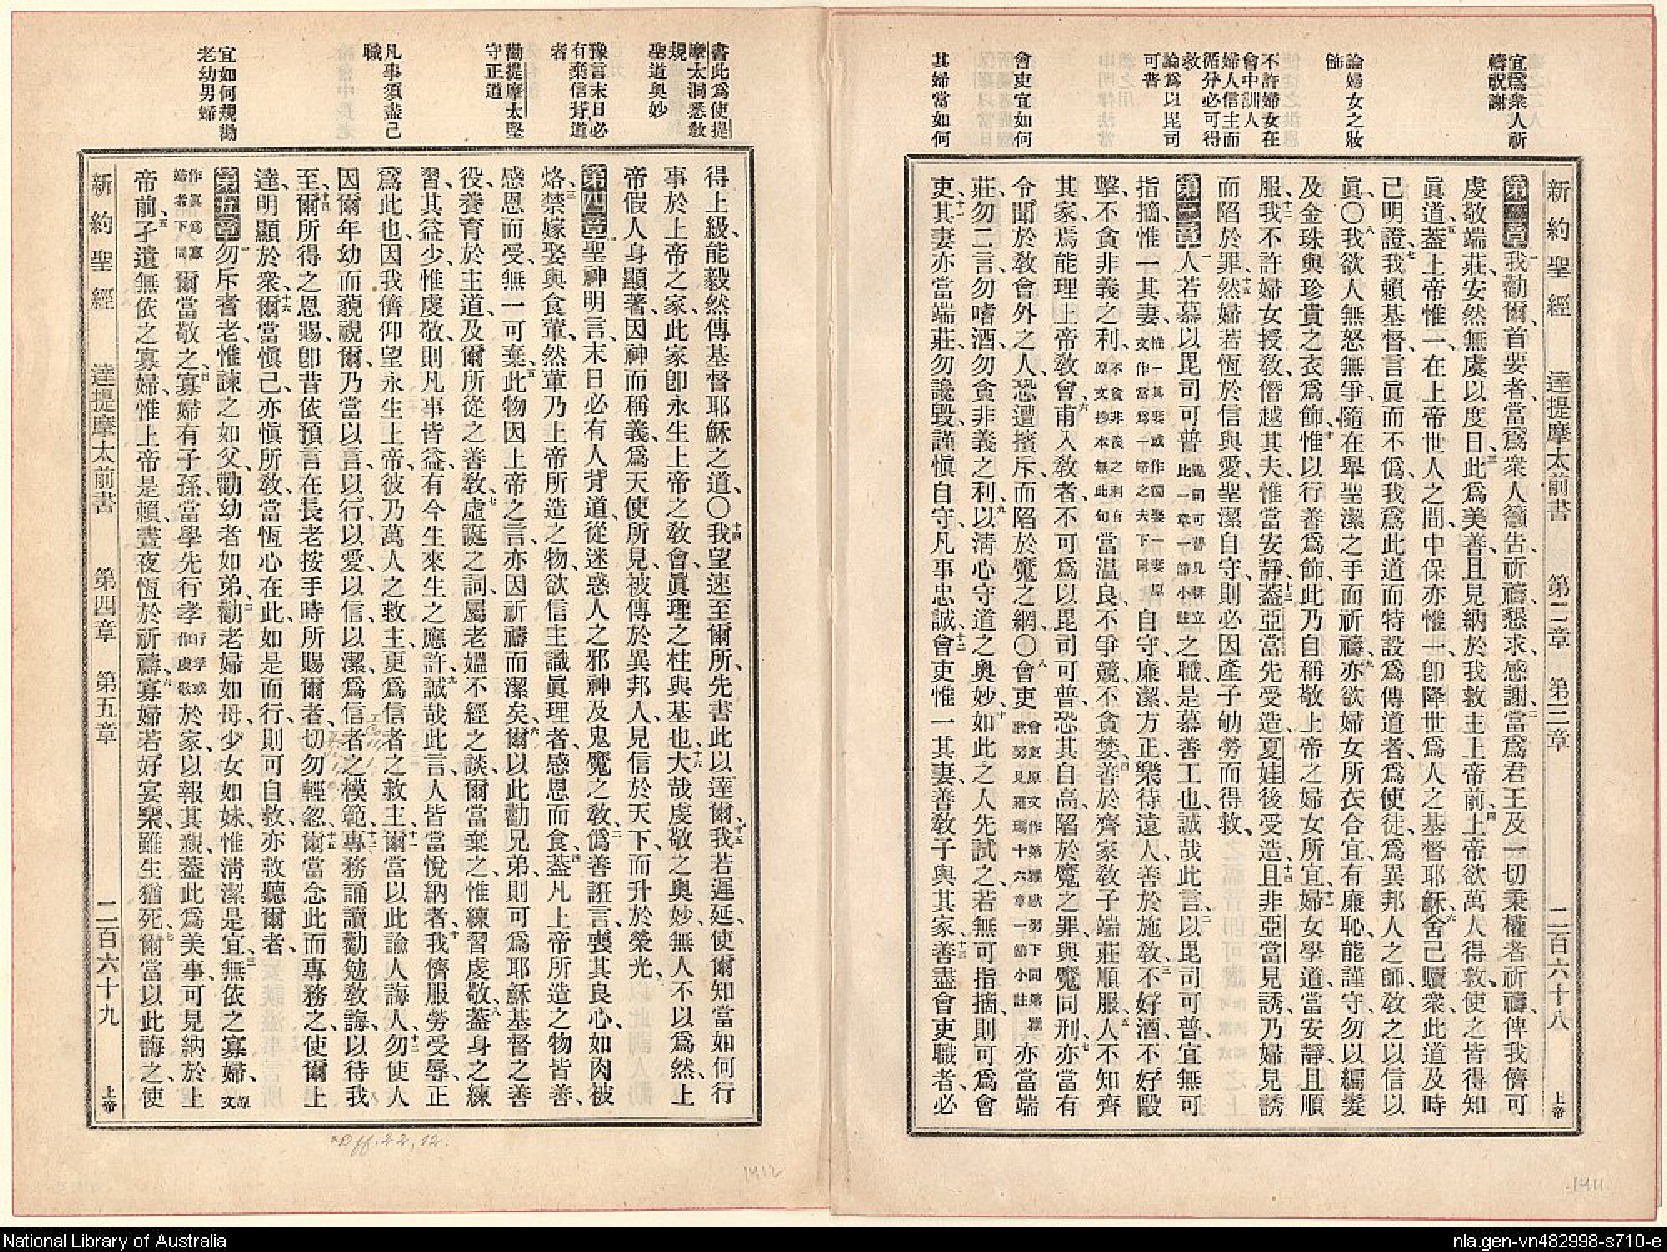 宜爲衆人祈
禱祝謝
論婦女之妝
飾
不許婦女在
會中訓人
婦人信主而
循分必可得
救
論爲以毘司
可普
會吏宜如何
其婦當如何
新約聖經 達提摩太前書 第二章 第三章 二百六十八 上帝
第二章 一我勸爾首要者、當爲衆人籲告祈禱、懇求、感謝、二當爲君王及一切秉權者祈禱、俾我儕可
虔敬端莊、安然無虞以度日、三此爲美善、且見納於我救主上帝前、四上帝欲萬人得救、使之皆得知
眞道、五蓋上帝惟一、在上帝世人之間、中保亦惟一、卽降世爲人之基督耶穌、六舍己贖衆、此道及時
已明證、七我賴基督言眞而不僞、我爲此道而特設爲傳道者、爲使徒、爲異邦人之師、敎之以信以
眞、〇八我欲人無怒無爭、隨在舉聖潔之手而祈禱、九亦欲婦女所衣合宜、有廉恥、能謹守、勿以編髮
及金珠與珍貴之衣爲飾、十惟以行善爲飾、此乃自稱敬上帝之婦女所宜、十一婦女學道、當安靜、且順
服、十二我不許婦女授敎、僭越其夫、惟當安靜、十三蓋亞當先受造、夏娃後受造、十四且非亞當見誘、乃婦見誘
而陷於罪、十五然婦若恆於信與愛、聖潔自守、則必因產子劬勞而得救、
第三章 一人若慕以毘司可普之職、是慕善工也、誠哉此言、二以毘司可普宜無可
指摘、惟一其妻、自守、廉潔、方正、樂待遠人、善於施敎、三不好酒、不好毆
擊、不貪非義之利、當溫良、不爭競、不貪婪、四善於齊家、敎子端莊順服、五人不知齊
其家、焉能理上帝敎會、六甫入敎者、不可爲以毘司可普、恐其自高、陷於魔之罪、與魔同刑、七亦當有
令聞於敎會外之人、恐遭擯斥、而陷於魔之網、〇八會吏亦當端
莊、勿二言、勿嗜酒、勿貪非義之利、九以淸心守道之奧妙、十如此之人先試之、若無可指摘、則可爲會
吏、十一其妻亦當端莊、勿讒毀、謹愼自守、凡事忠誠、十二會吏惟一其妻、善敎子與其家、十三善盡會吏職者、必
書此爲使提
摩太洞悉敎
規
聖道奧妙
豫言末日必
有棄信背道
者
勸提摩太堅
守正道
凡事須盡己
職
宜如何規勸
老幼男婦
得上級、能毅然傳基督耶穌之道、〇十四我望速至爾所、先書此以達爾、十五我若遲延、使爾知當如何行
事於上帝之家、此家卽永生上帝之敎會、眞理之柱與基也、十六大哉虔敬之奧妙、無人不以爲然、上
帝假人身顯著、因神而稱義、爲天使所見、被傳於異邦人、見信於天下、而升於榮光、
第四章 一聖神明言、末日必有人背道、從迷惑人之邪神、及鬼魔之敎、二僞善誑言、喪其良心、如肉被
烙、三禁嫁娶與食葷、然葷乃上帝所造之物、欲信主識眞理者感恩而食、四蓋凡上帝所造之物皆善、
感恩而受、無一可棄、五此物因上帝之言、亦因祈禱而潔矣、六爾以此勸兄弟、則可爲耶穌基督之善
役、養育於主道、及爾所從之善敎、七虛誕之詞、屬老嫗不經之談、爾當棄之、惟練習虔敬、八蓋身之練
習、其益少、惟虔敬則凡事皆益、有今生來生之應許、九誠哉此言、人皆當悅納者、十我儕服勞受辱、正
爲此也、因我儕仰望永生上帝、彼乃萬人之救主、更爲信者之救主、十一爾當以此諭人誨人、十二勿使人
因爾年幼而藐視爾、乃當以言、以行、以愛、以信、以潔、爲信者之模範、十三專務誦讀勸勉敎誨、以待我
至、十四爾所得之恩賜、卽昔依預言、在長老按手時所賜爾者、切勿輕忽、十五爾當念此而專務之、使爾上
達、明顯於衆、十六爾當愼己、亦愼所敎、當恆心在此、如是而行、則可自救、亦救聽爾者、
第五章 一勿斥耆老、惟諫之如父、勸幼者如弟、二勸老婦如母、少女如妹、惟淸潔是宜、三無依之寡婦、原文
作眞爲寡婦者下同爾當敬之、四寡婦有子孫、當學先行孝行孝或作虔敬於家、以報其親、蓋此爲美事、可見納於上
帝前、五孑遺無依之寡婦、惟上帝是賴、晝夜恆於祈禱、六寡婦若好宴樂、雖生猶死、七爾當以此誨之、使
新約聖經 達提摩太前書 第四章 第五章 二百六十九 上帝
1912
National Library of Australia
nla.gen-vn482998-s710-e